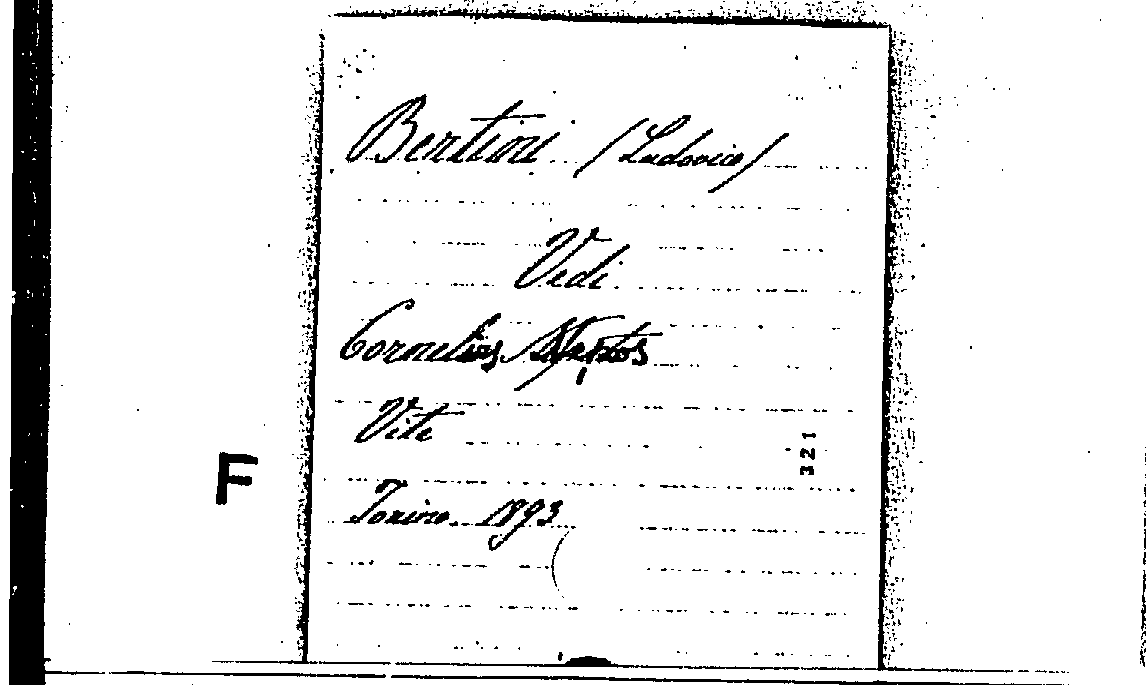 Bertini (Ludovico)
Vedi
Cornelius Nepos
Vite
321
F
Torino 1893